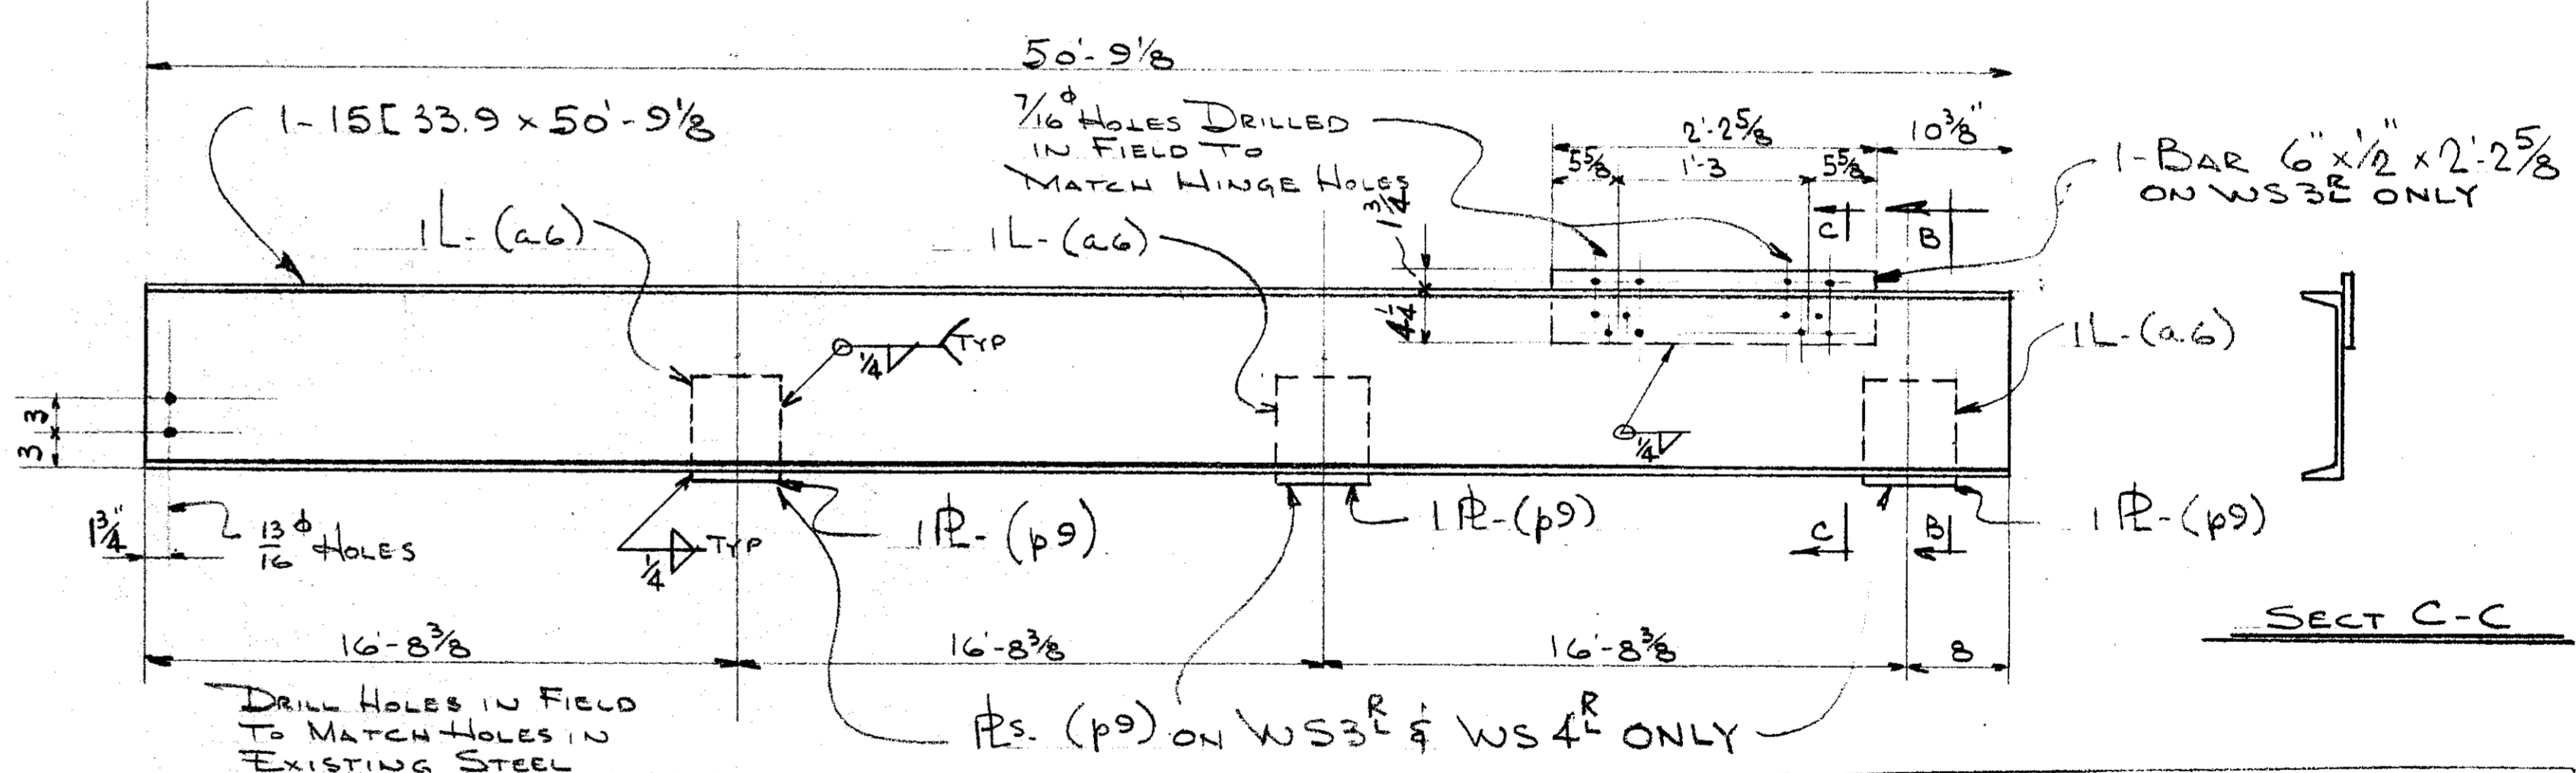 50'-9 1/8
1-15[ 33.9 x 50'-9 1/8
7/16 ϕ HOLES DRILLED
IN FIELD TO
MATCH HINGE HOLES
2'-2 5/8
10 3/8"
5 5/8
1'-3
5 5/8
1-BAR 6" x 1/2" x 2'-2 5/8
ON WS3 R L ONLY
1L-(a6)
1L-(a6)
1 3/4
C
B
4 1/4
1L-(a6)
1/4
TYP
3
3
1/4
1 3/4"
13/16 ϕ HOLES
1/4
TYP
1 PL-(p9)
1 PL-(p9)
C
B
1 PL-(p9)
SECT C-C
16'-8 3/8
16'-8 3/8
16'-8 3/8
8
DRILL HOLES IN FIELD
TO MATCH HOLES IN
EXISTING STEEL
PLs. (p9) ON WS3 R L & WS4 R L ONLY